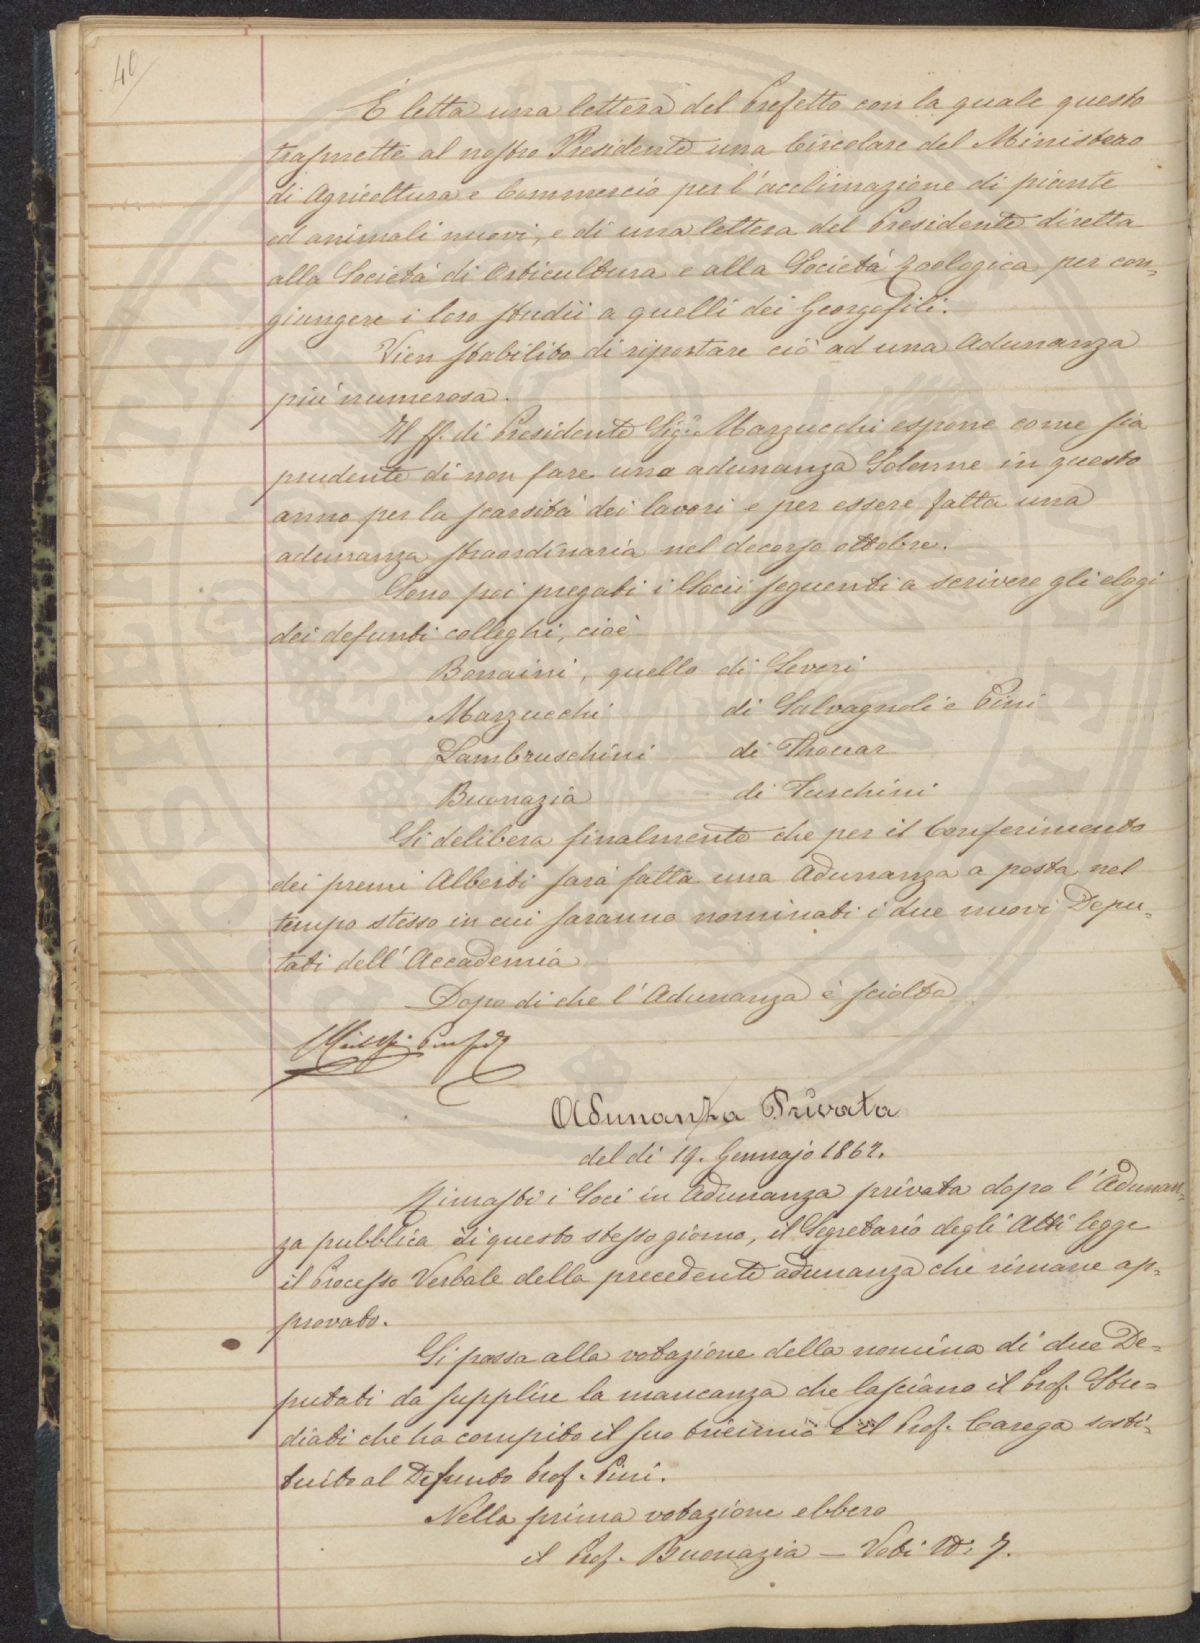 40
È letta una lettera del Prefetto con la quale questo
trasmette al nostro Presidente una Circolare del Ministero
di Agricoltura e Commercio per l'acclimazione di piante
ed animali nuovi, e di una lettera del Presidente diretta
alla Società di Orticultura e alla Società Zoologica per con=
giungere i loro studii a quelli dei Georgofili.
Vien stabilito di riportare ciò ad una Adunanza
più numerosa.
Il ff. di Presidente Sigr. Marzucchi espone come sia
prudente di non fare una adunanza Solenne in questo
anno per la scarsità dei lavori e per essere fatta una
adunanza straordinaria nel decorso ottobre.
Sono poi pregati i Socii seguenti a scrivere gli elogi
dei defunti colleghi, cioè
Bonaini, quello di Severi
Marzucchi di Salvagnoli e Pini
Lambruschini di Thouar
Buonazia di Luschini
Si delibera finalmente che per il Conferimento
dei premi Alberti sarà fatta una Adunanza a posta nel
tempo stesso in cui saranno nominati i due nuovi Depu=
tati dell'Accademia
Dopo di che l'Adunanza è sciolta
Adunanza Privata
del dì 19. Gennajo 1862.
Rimasti i Soci in Adunanza privata dopo l'Adunan=
za pubblica di questo stesso giorno, il Segretario degli Atti legge
il Processo Verbale della precedente adunanza che rimane ap=
provato.
Si passa alla votazione della nomina di due De=
putati da supplire la mancanza che lasciano il Prof. Stu=
diati che ha compito il suo triennio e il Prof. Carega sosti=
tuito al Defunto Prof. Pini.
Nella prima votazione ebbero
il Prof. Buonazia — Voti N: 7.